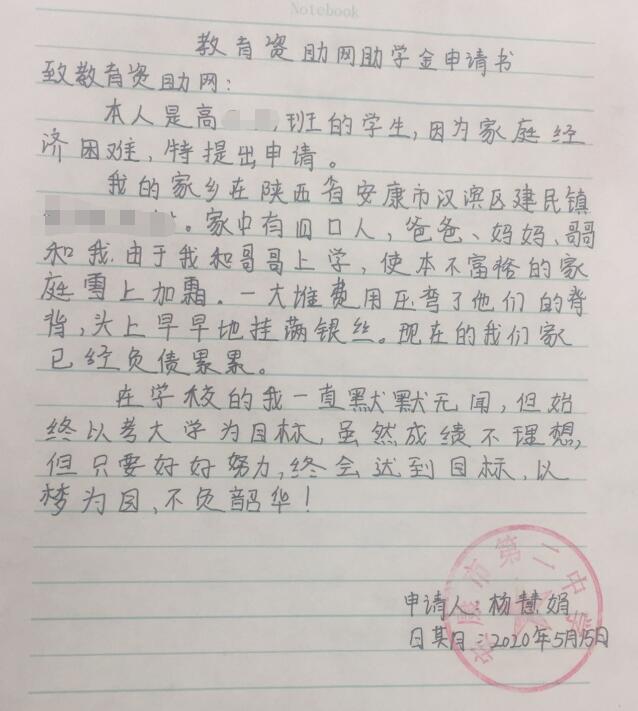 Notebook
教育资助网助学金申请书
致教育资助网：
本人是高 班的学生，因为家庭经
济困难，特提出申请。
我的家乡在陕西省安康市汉滨区建民镇
。家中有四口人，爸爸、妈妈、哥哥
和我.由于我和哥哥上学，使本不富裕的家
庭雪上加霜。一大堆费用压弯了他们的脊
背，头上早早地挂满银丝。现在的我们家
已经负债累累。
在学校的我一直默默无闻，但始
终以考大学为目标，虽然成绩不理想，
但只要好好努力，终会达到目标，以
梦为目，不负韶华！
安康市第二中学
申请人：杨慧娟
日期：2020年5月15日